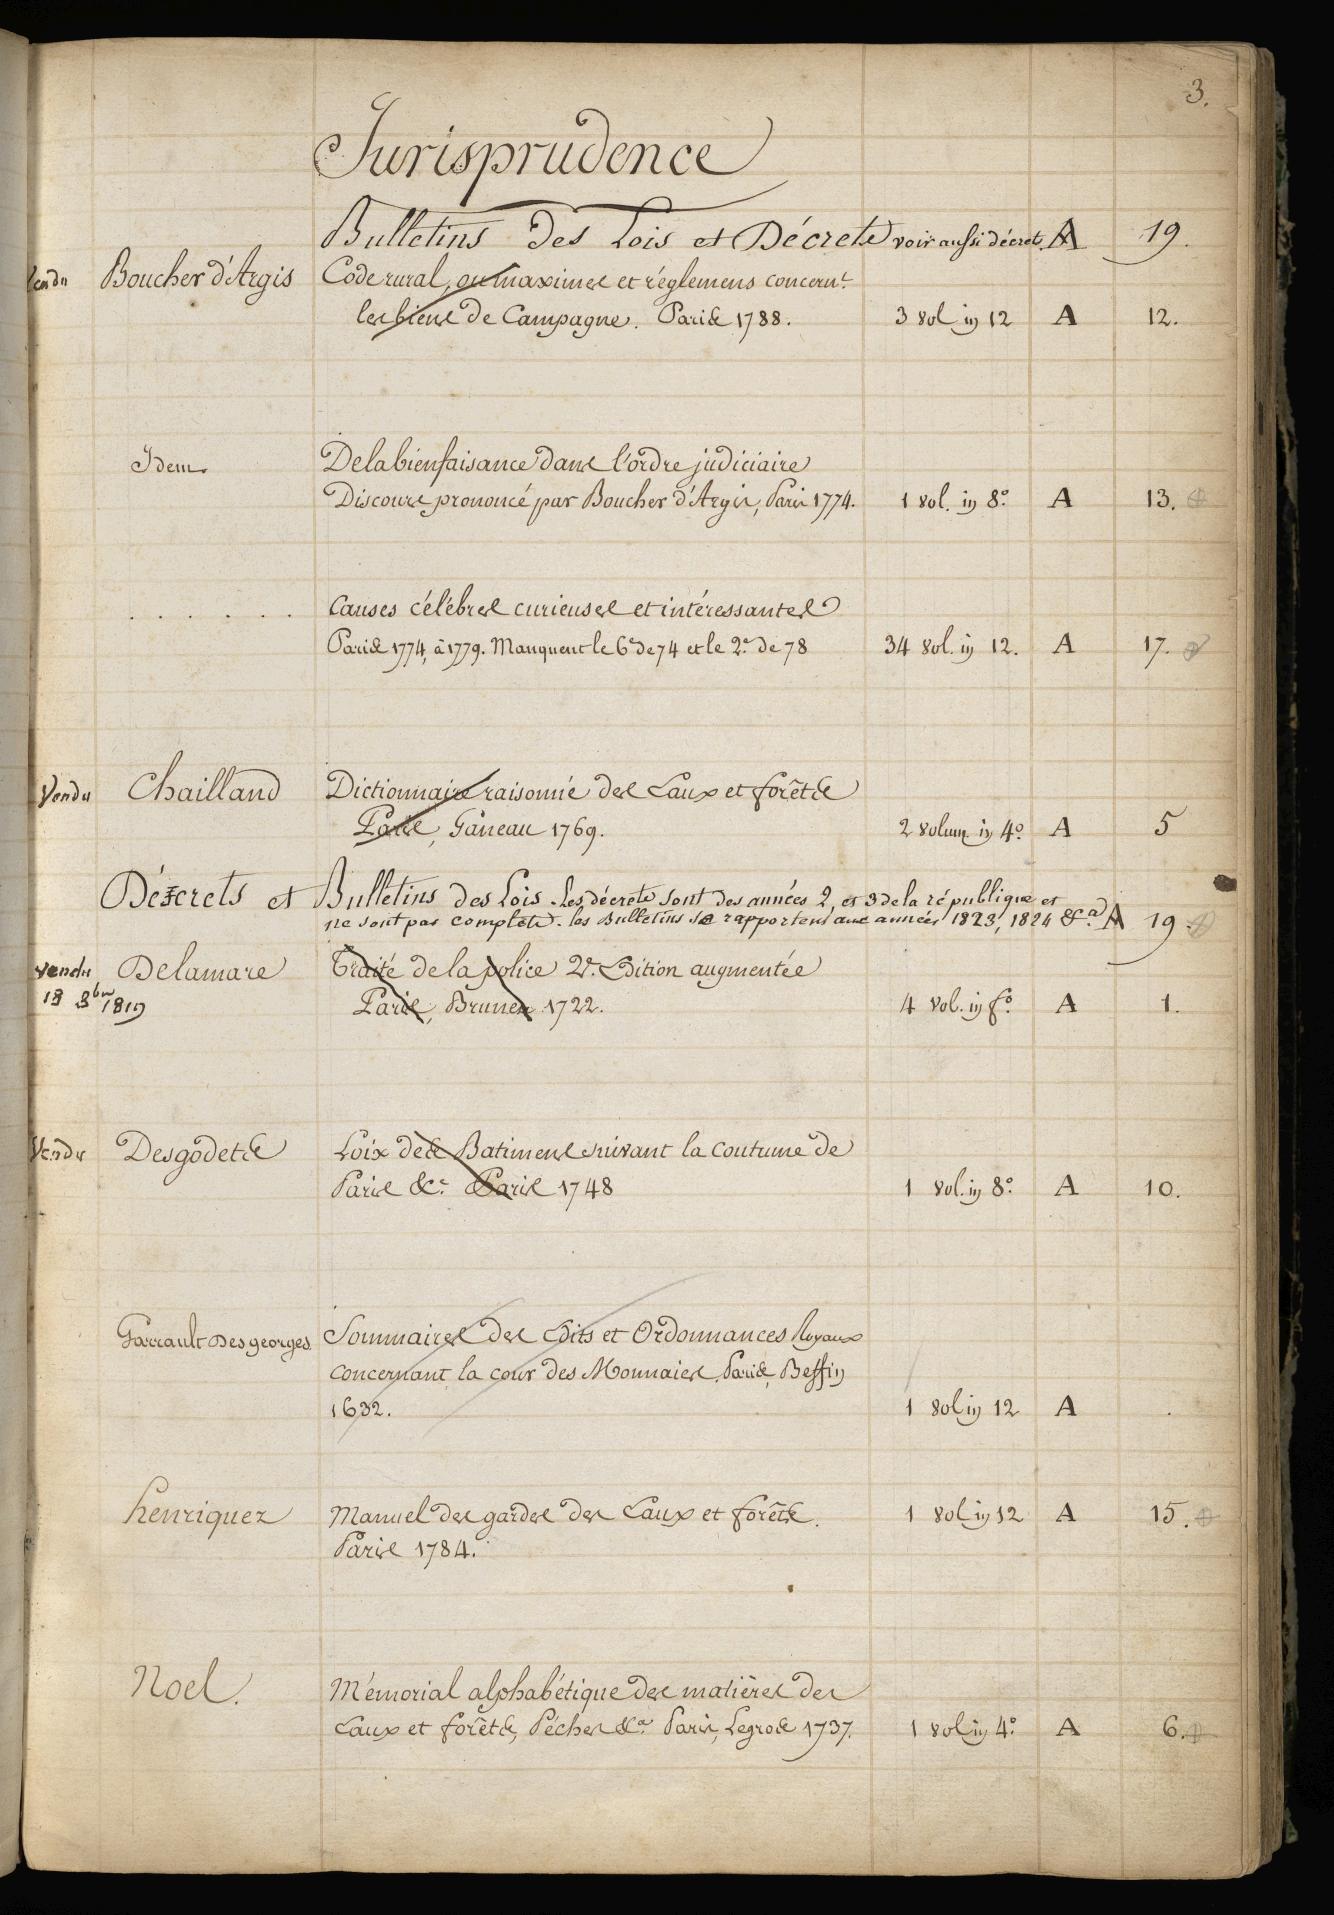 3.
Jurisprudence
Bulletins des Lois et Décrets voir aussi décret A 19.
Vendu Boucher d'Argis Code rural, ou maximes et réglemens concernt.
les biens de Campagne. Paris 1788. 3 vol in 12 A 12.
Idem De la bienfaisance dans l'ordre judiciaire
Discours prononcé par Boucher d'Argis, Paris 1774. 1 vol. in 8º A 13.
. . . . . . Causes célébres curieuses et intéressantes
Paris 1774, à 1779. Manquent le 6e de 74 et le 2e de 78 34 vol. in 12. A 17.
Vendu Chailland Dictionnaire raisonné des Eaux et forêts
Paris, Ganeau 1769. 2 volum. in 4º A 5
Décrets et Bulletins des Lois. Les décrets sont des années 2, et 3 de la république et
ne sont pas complets. les Bulletins se rapportent aux années 1823, 1824 &ca A 19.
vendu Delamare Traité de la police 2e. Edition augmentée
18 8bre 1819 Paris, Brunet 1722. 4 vol. in fº. A 1.
Vendu Desgodets Loix des Batimens suivant la coutume de
Paris &c. Paris 1748 1 vol. in 8º. A 10.
Garrault Desgeorges. Sommaires des Edits et Ordonnances Royaux
concernant la cour des Monnaies. Paris, Bessin
1632. 1 vol in 12 A .
henriquez Manuel des gardes des Eaux et forêts. 1 vol in 12 A 15.
Paris 1784.
Noel. Mémorial alphabétique des matières des
Eaux et forêts, Péches &ca Paris, Legras 1737. 1 vol in 4º A 6.